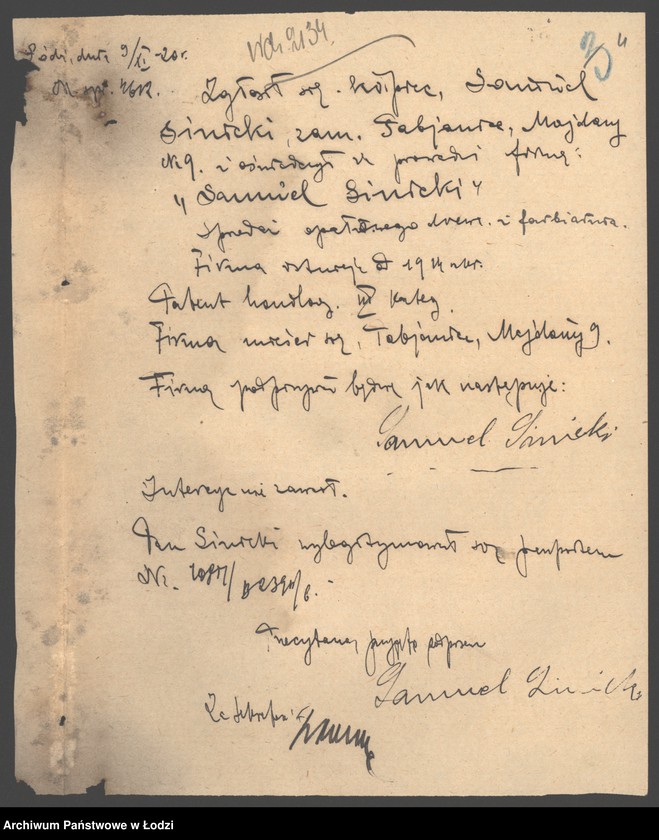 Łódź, dnia 9/XI-20r.
Zgłosił się kupiec, Samuel
Sinicki, zam. Pabjanice, Majdany
№ 9. i oświadczył że prowadzi firmę:
"Samuel Sinicki"
Sprzedaż opałowego drzewa i farbiarnia.
Firma istnieje od 1914 roku.
Patent handlow. III Kateg.
Firma mieści się, Pabjanice, Majdany 9.
Firmę podpisywał będzie jak następuje:
Samuel Sinicki
Intercyzę nie zawarł.
Pan Sinicki wylegitymował się paszportem
Nr.
Przeczytano, przyjęto podpisano
Samuel Sinicki
Za Sekretarza
Archiwum Państwowe w Łodzi